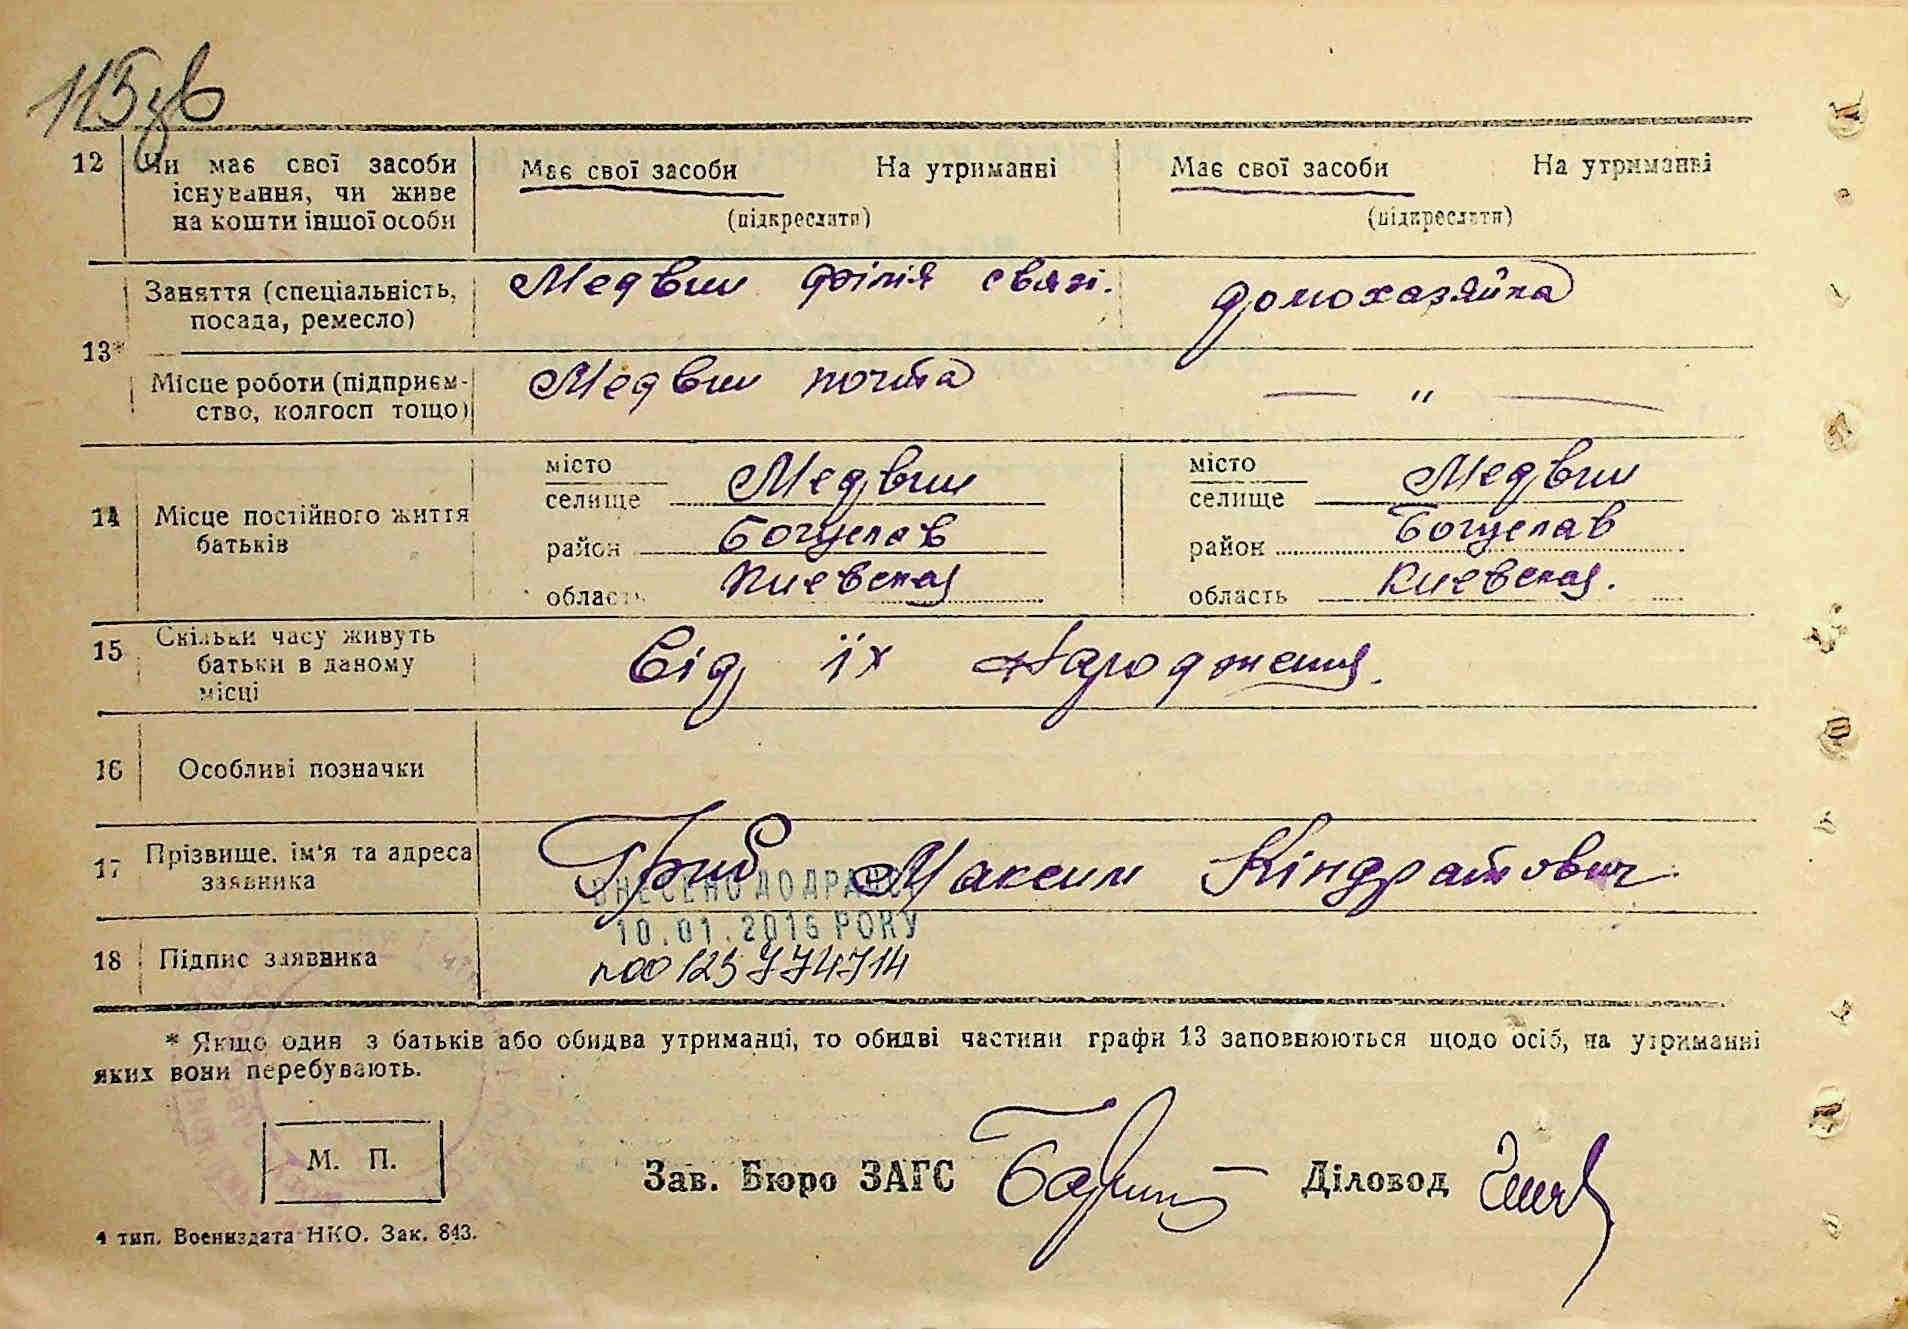 115зв
12 Чи має свої засоби існування, чи живе на кошти іншої особи
Має свої засоби На утриманні
(підкреслити)
Має свої засоби На утриманні
(підкреслити)
13*
Заняття (спеціальність, посада, ремесло)
Медвин філія связі.
домохазяйка
Місце роботи (підприємство, колгосп тощо)
Медвин почта
— " —
14 Місце постійного життя батьків
місто
селище Медвин
район Богуслав
область Киевская
місто
селище Медвин
район Богуслав
область Киевская.
15 Скільки часу живуть батьки в даному місці
Від їх народження.
16 Особливі позначки
17 Прізвище, ім'я та адреса заявника
Гриб Максим Кіндратович
ВНЕСЕНО ДО ДРАЦС
10.01.2016 РОКУ
18 Підпис заявника
* Якщо один з батьків або обидва утриманці, то обидві частини графи 13 заповнюються щодо осіб, на утриманні
яких вони перебувають.
М. П.
Зав. Бюро ЗАГС
Діловод
4 тип. Воениздата НКО. Зак. 843.